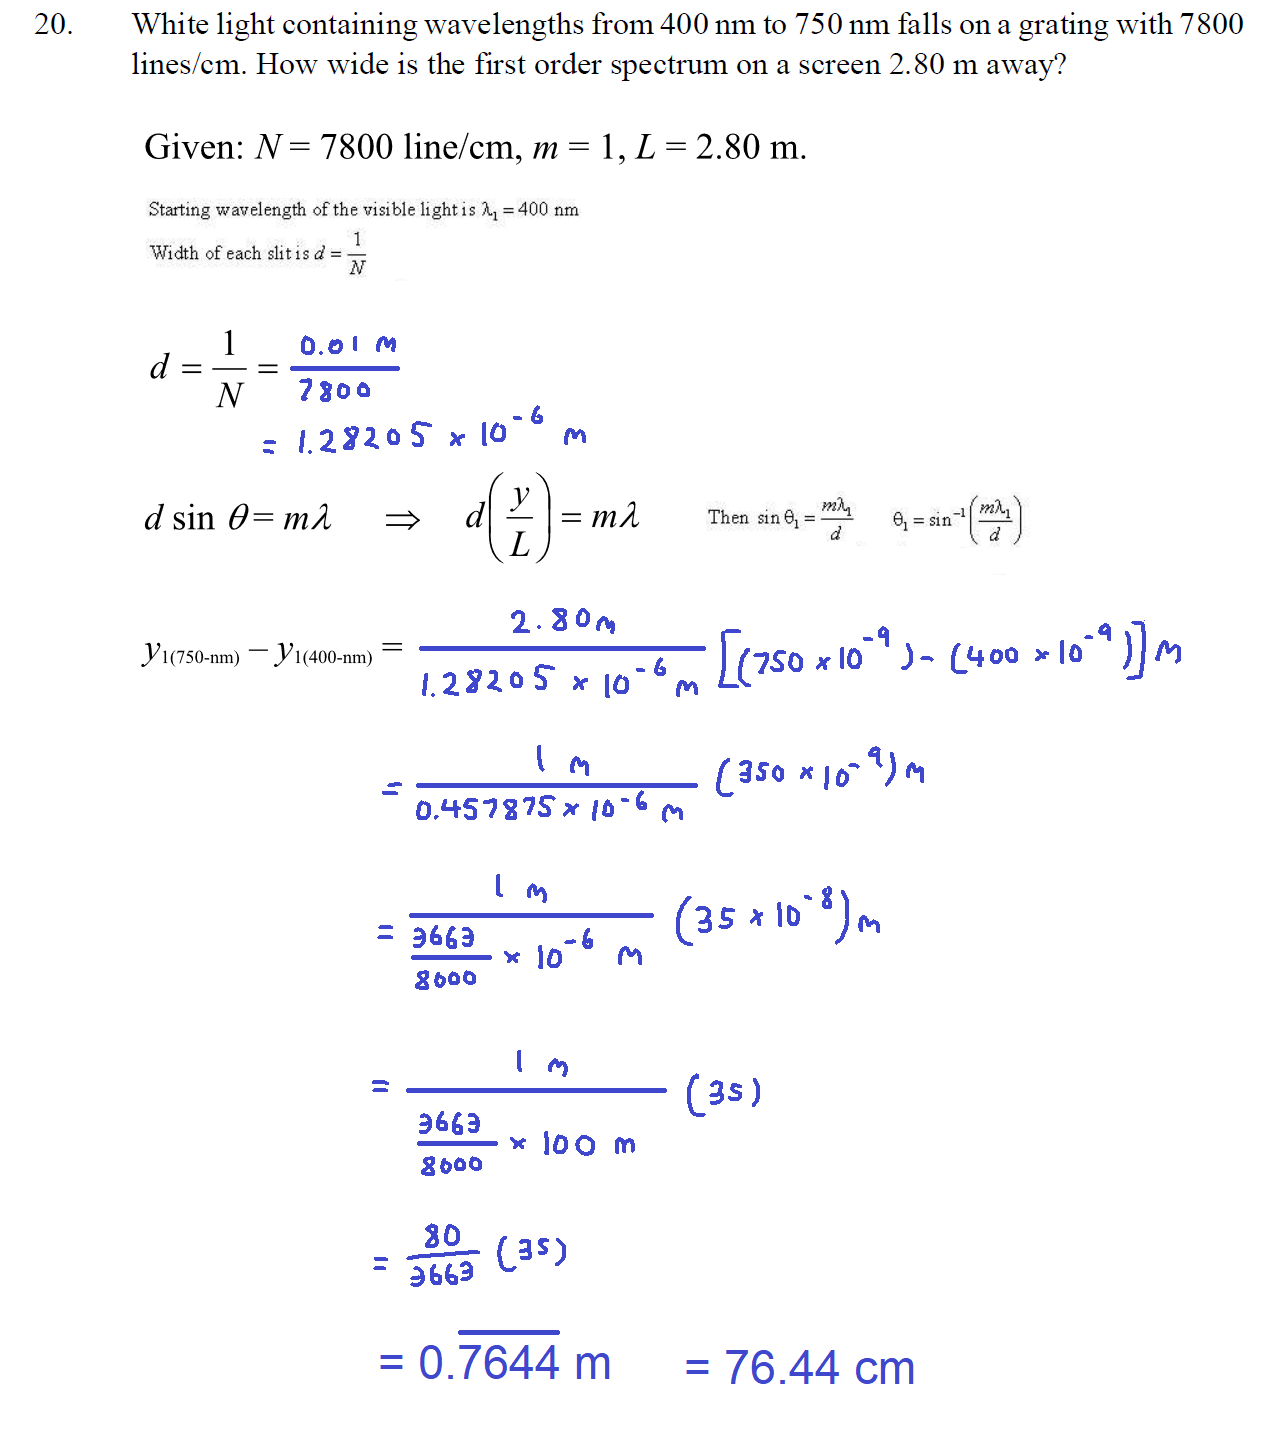 20. White light containing wavelengths from 400 nm to 750 nm falls on a grating with 7800
lines/cm. How wide is the first order spectrum on a screen 2.80 m away?
Given: N = 7800 line/cm, m = 1, L = 2.80 m.
Starting wavelength of the visible light is λ₁ = 400 nm
Width of each slit is d = 1/N
d = 1/N = 0.01 m / 7800
= 1.28205 × 10⁻⁶ m
d sin θ = mλ ⇒ d(y/L) = mλ Then sin θ₁ = mλ₁/d θ₁ = sin⁻¹(mλ₁/d)
y₁(750-nm) − y₁(400-nm) = 2.80 m / 1.28205 × 10⁻⁶ m [(750 × 10⁻⁹) - (400 × 10⁻⁹)] m
= 1 m / 0.457875 × 10⁻⁶ m (350 × 10⁻⁹) m
= 1 m / 3663/8000 × 10⁻⁶ m (35 × 10⁻⁸) m
= 1 m / 3663/8000 × 100 m (35)
= 80/3663 (35)
= 0.7̅6̅4̅4̅ m = 76.44 cm